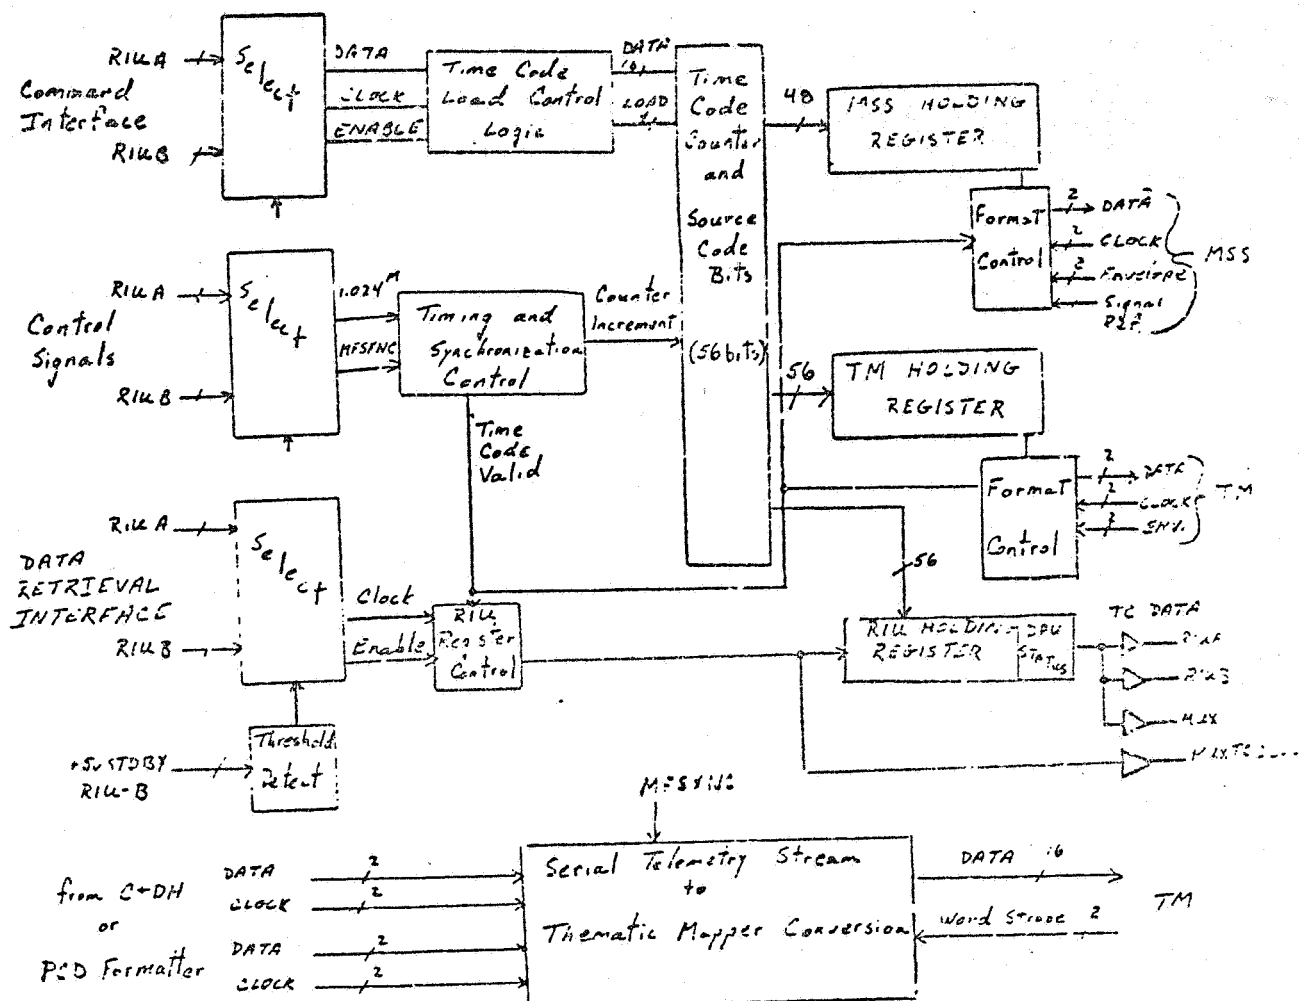 RIU A
Command
Interface
RIU B
Select
DATA
CLOCK
ENABLE
Time Code
Load Control
Logic
DATA
LOAD
Time
Code
Counter
and
Source
Code
Bits
(56 bits)
48
MSS HOLDING
REGISTER
Format
Control
2 DATA
2 CLOCK
2 Envelope
Signal
MSS
RIU A
Control
Signals
RIU B
Select
1.024 M
MFSYNC
Timing and
Synchronization
Control
Counter
Increment
Time
Code
Valid
56
TM HOLDING
REGISTER
Format
Control
2 DATA
2 CLOCK
2 ENV.
TM
RIU A
DATA
RETRIEVAL
INTERFACE
RIU B
Select
Clock
Enable
RIU
Register
Control
56
RIU HOLDING
REGISTER
STATUS
TC DATA
RIU A
RIU B
MUX
Threshold
Detect
+5V STDBY
RIU-B
MFSYNC
from C+DH
or
PCD Formatter
DATA 2
CLOCK 2
DATA 2
CLOCK 2
Serial Telemetry Stream
to
Thematic Mapper Conversion
DATA 16
Word Strobe 2
TM